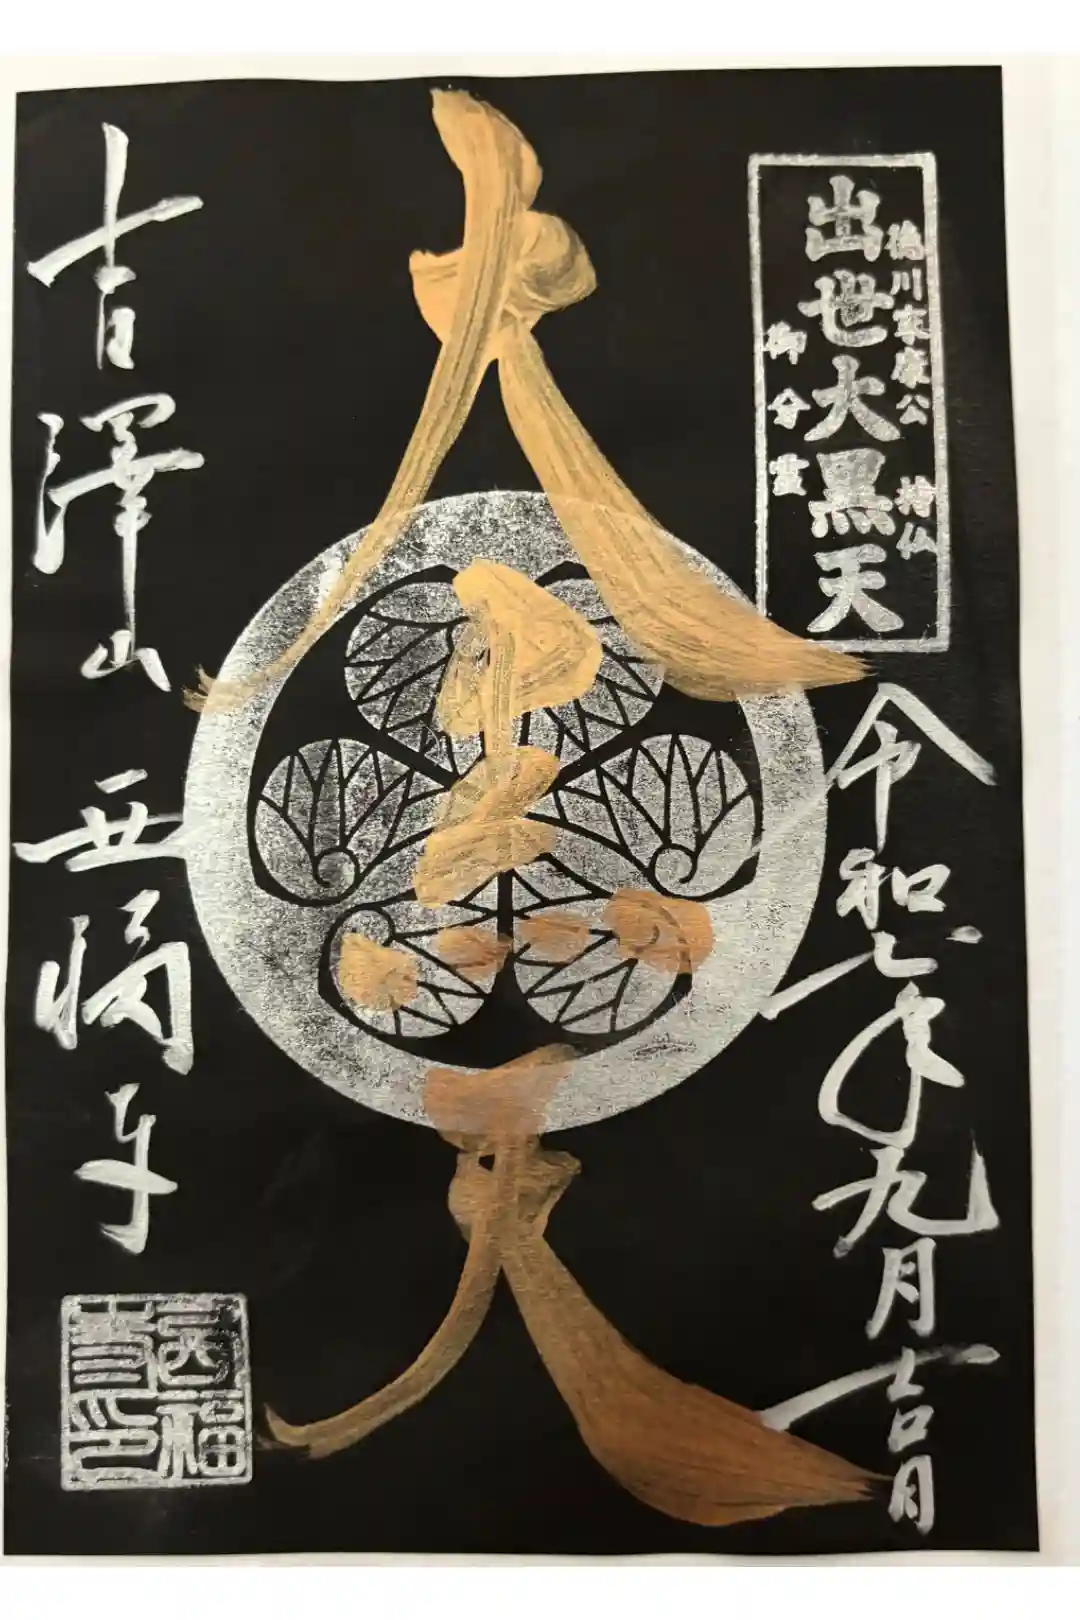 徳川家康公 持仏
出世大黒天
御分霊
令和七年九月吉日
大黒天
吉澤山 西福寺
西福寺印